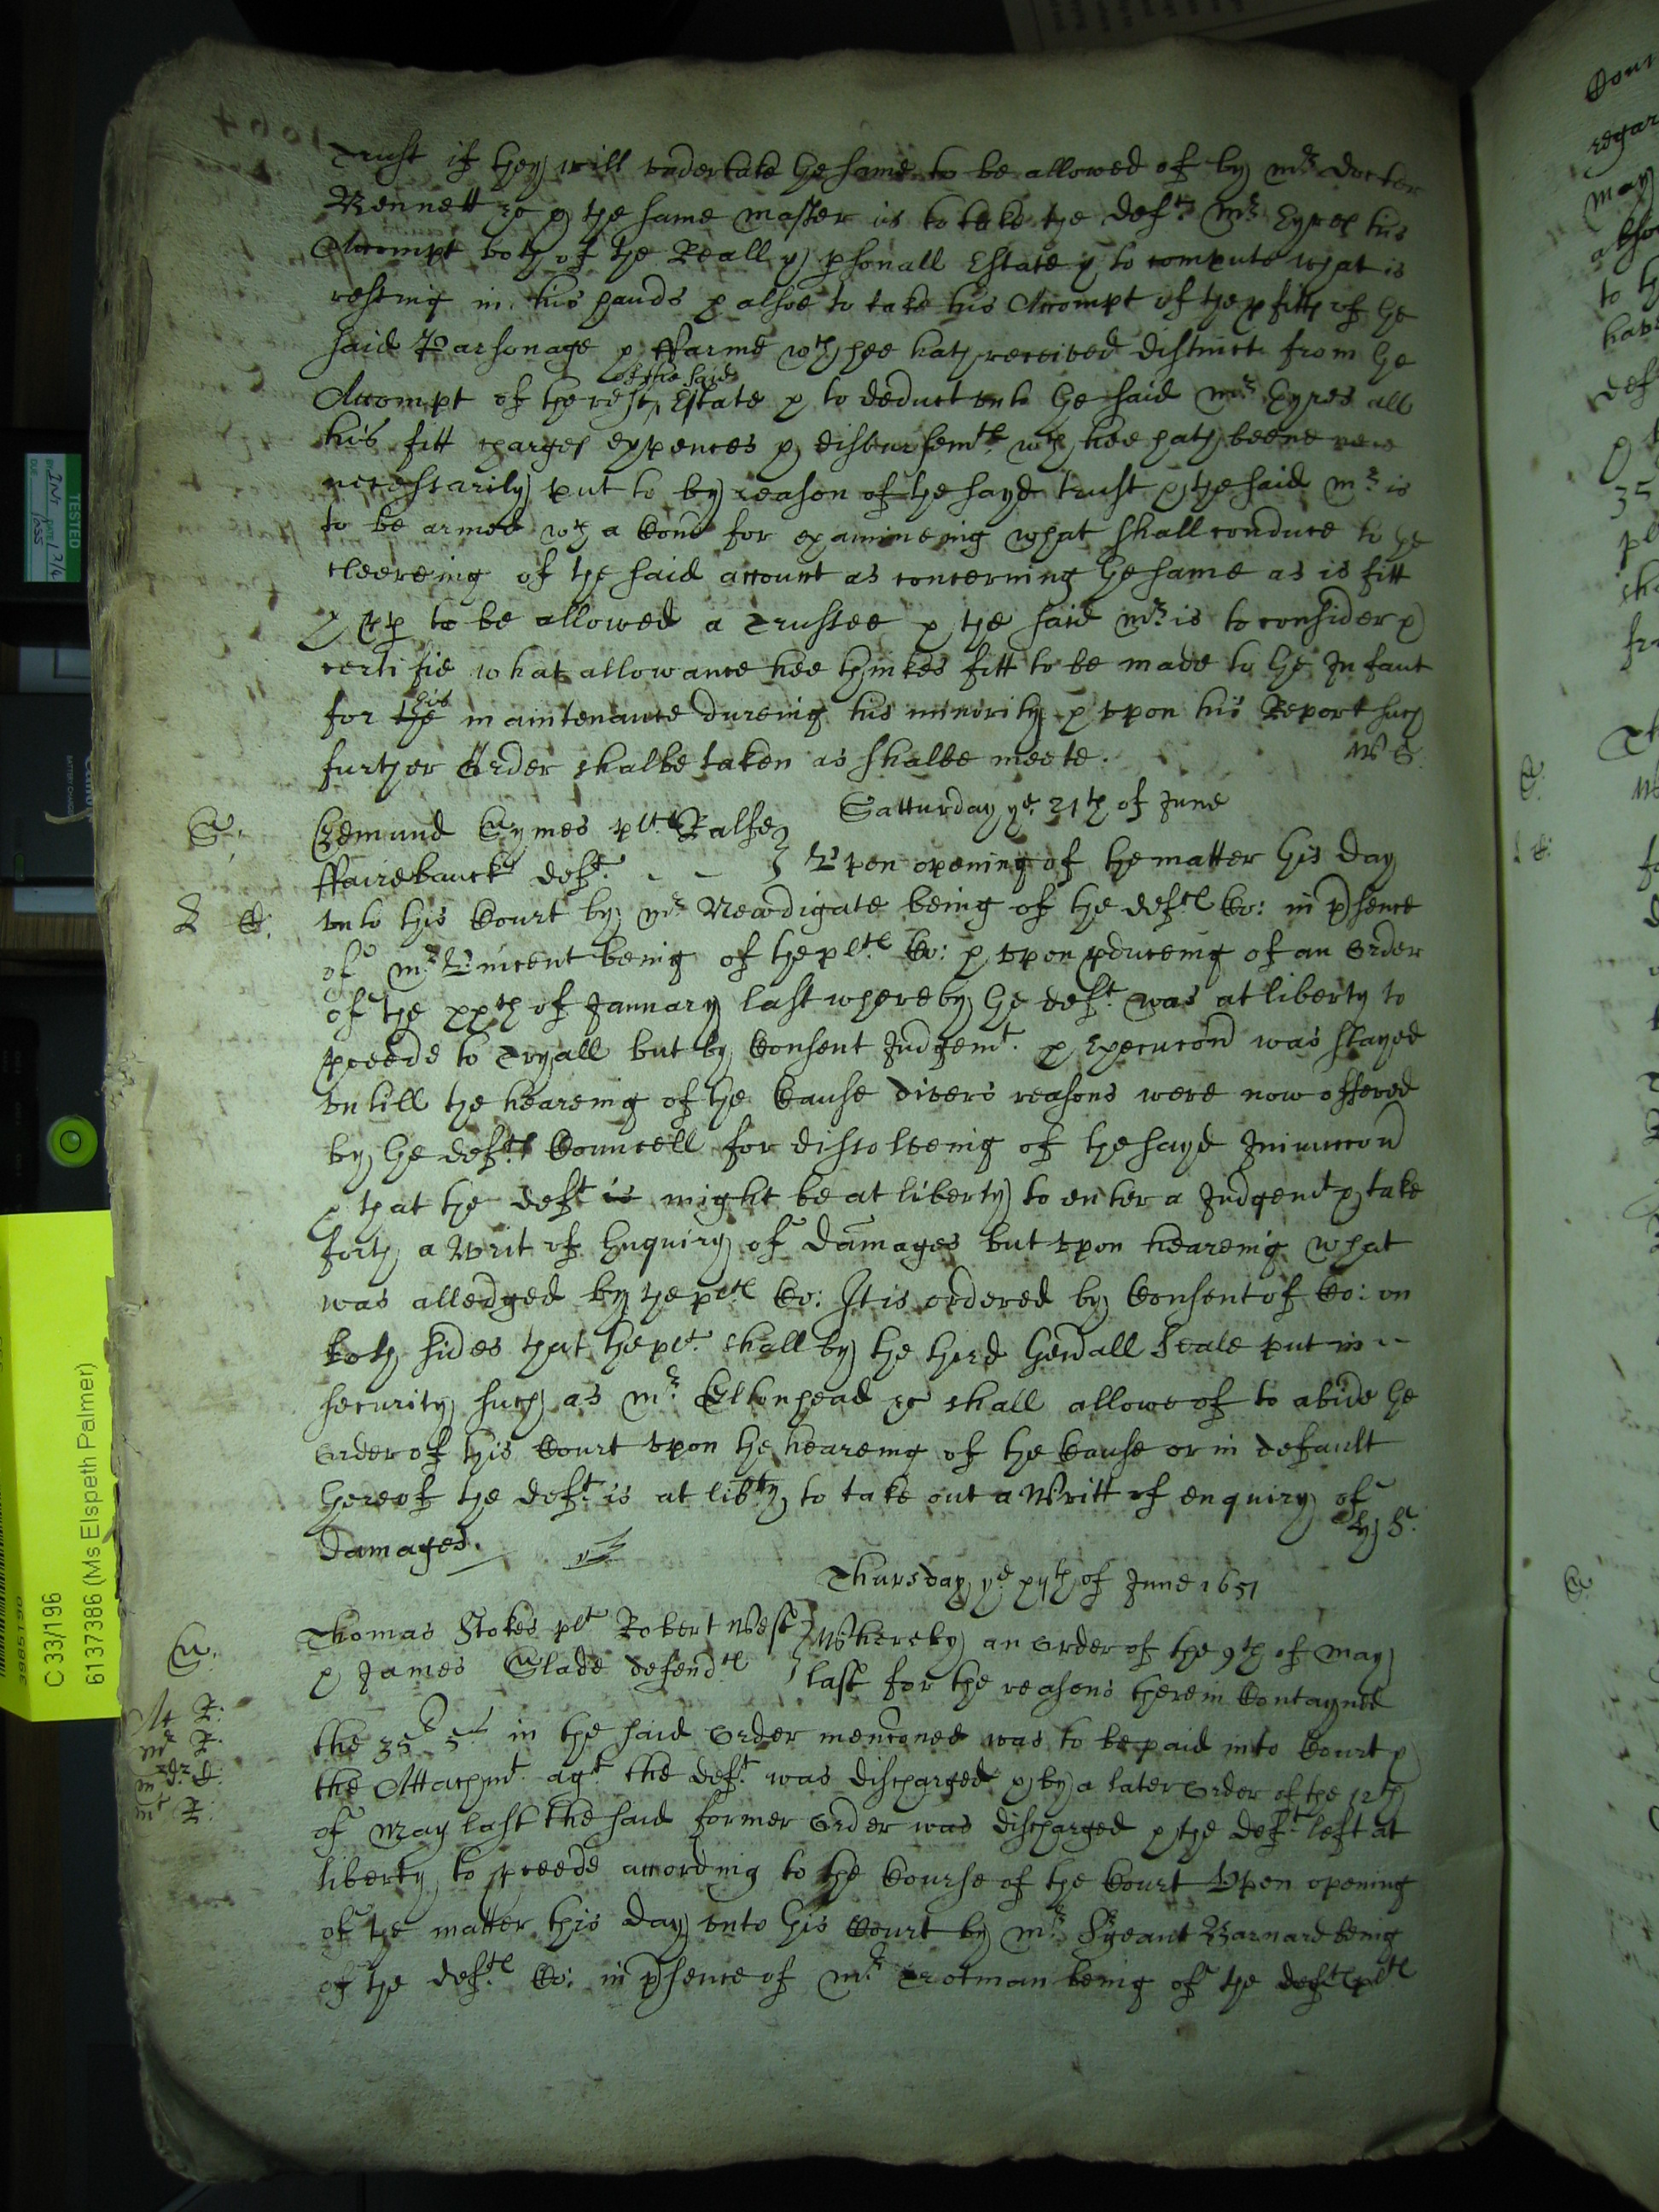 Trust if they will vndertake the same to be allowed of by mr Doctor
Bennett &c & the same master is to take the deft mr Eyres his
Accompt both of the Reall & psonall Estate & to compute what is
resting in his hands & alsoe to take his Accompt of the pfitts of the
said Parsonage & ffarme wch hee hath received distinct from the
of the said
Accompt of the rest Estate & to deduct vnto the said mr Eyres all
his fitt charges expences & disbursemts wch hee hath beene
necessarily put to by reason of the sayd trust & the said mr is
to be armed wth a Comn for examineing what shall conduce to the
cleereing of the said account as concerning the same as is fitt
& pp to be allowed a Trustee & the said mr is to consider &
certifie what allowance hee thinkes fitt to be made to the Infant
his
for the maintenance dureing his minority & vpon his Report such
further Order shalbe taken as shalbe meete.
W S
Satturday ye 21th of June
Edmund Symes plt Ralfe
ffairebanck deft - - Vpon opening of the matter this day
vnto this Court by mr Newdigate being of the defts Co: in psence
of mr Vincent being of the plts Co: & vpon pduceing of an Order
of the xxth of January last whereby the deft was at liberty to
pceede to Tryall but by Consent Judgemt & Execucon was stayed
vntill the heareing of the Cause divers reasons were now offered
by the defts Councell for dissolveing of the sayd Iniunccon
& that the deft is might be at liberty to enter a Judgemt & take
forth a Writ of Enquiry of Damages but vpon heareing what
was alledged by the plts Co: It is ordered by Consent of Co: on
both sides that the plt shall by the third Genall Seale put in
security such as mr Elkonhead &c shall allowe of to abide the
Order of this Court vpon the heareing of the Cause or in default
thereof the deft is at libty to take out a Writt of enquiry of
Damages.
Thursday ye xijth of June 1651
Thomas Stokes plt Robert West
& James Slade defendts
Whereby an Order of the 9th of May
last for the reasons therein Contayned
the 35l 5s in the said Order menconed was to be paid into Court &
the Attachmt agt the deft was discharged & by a later Order of the 12th
of May last the said former Order was discharged & the deft left at
liberty to pceede according to the Course of the Court Vpon opening
of the matter this day vnto this Court by mr Sgeant Barnard being
of the defts Co: in psence of mr Trotman being of the defts plts
TESTED
BY INT DATE
DUE
C 33/196
6137386 (Ms Elspeth Palmer)
3985190